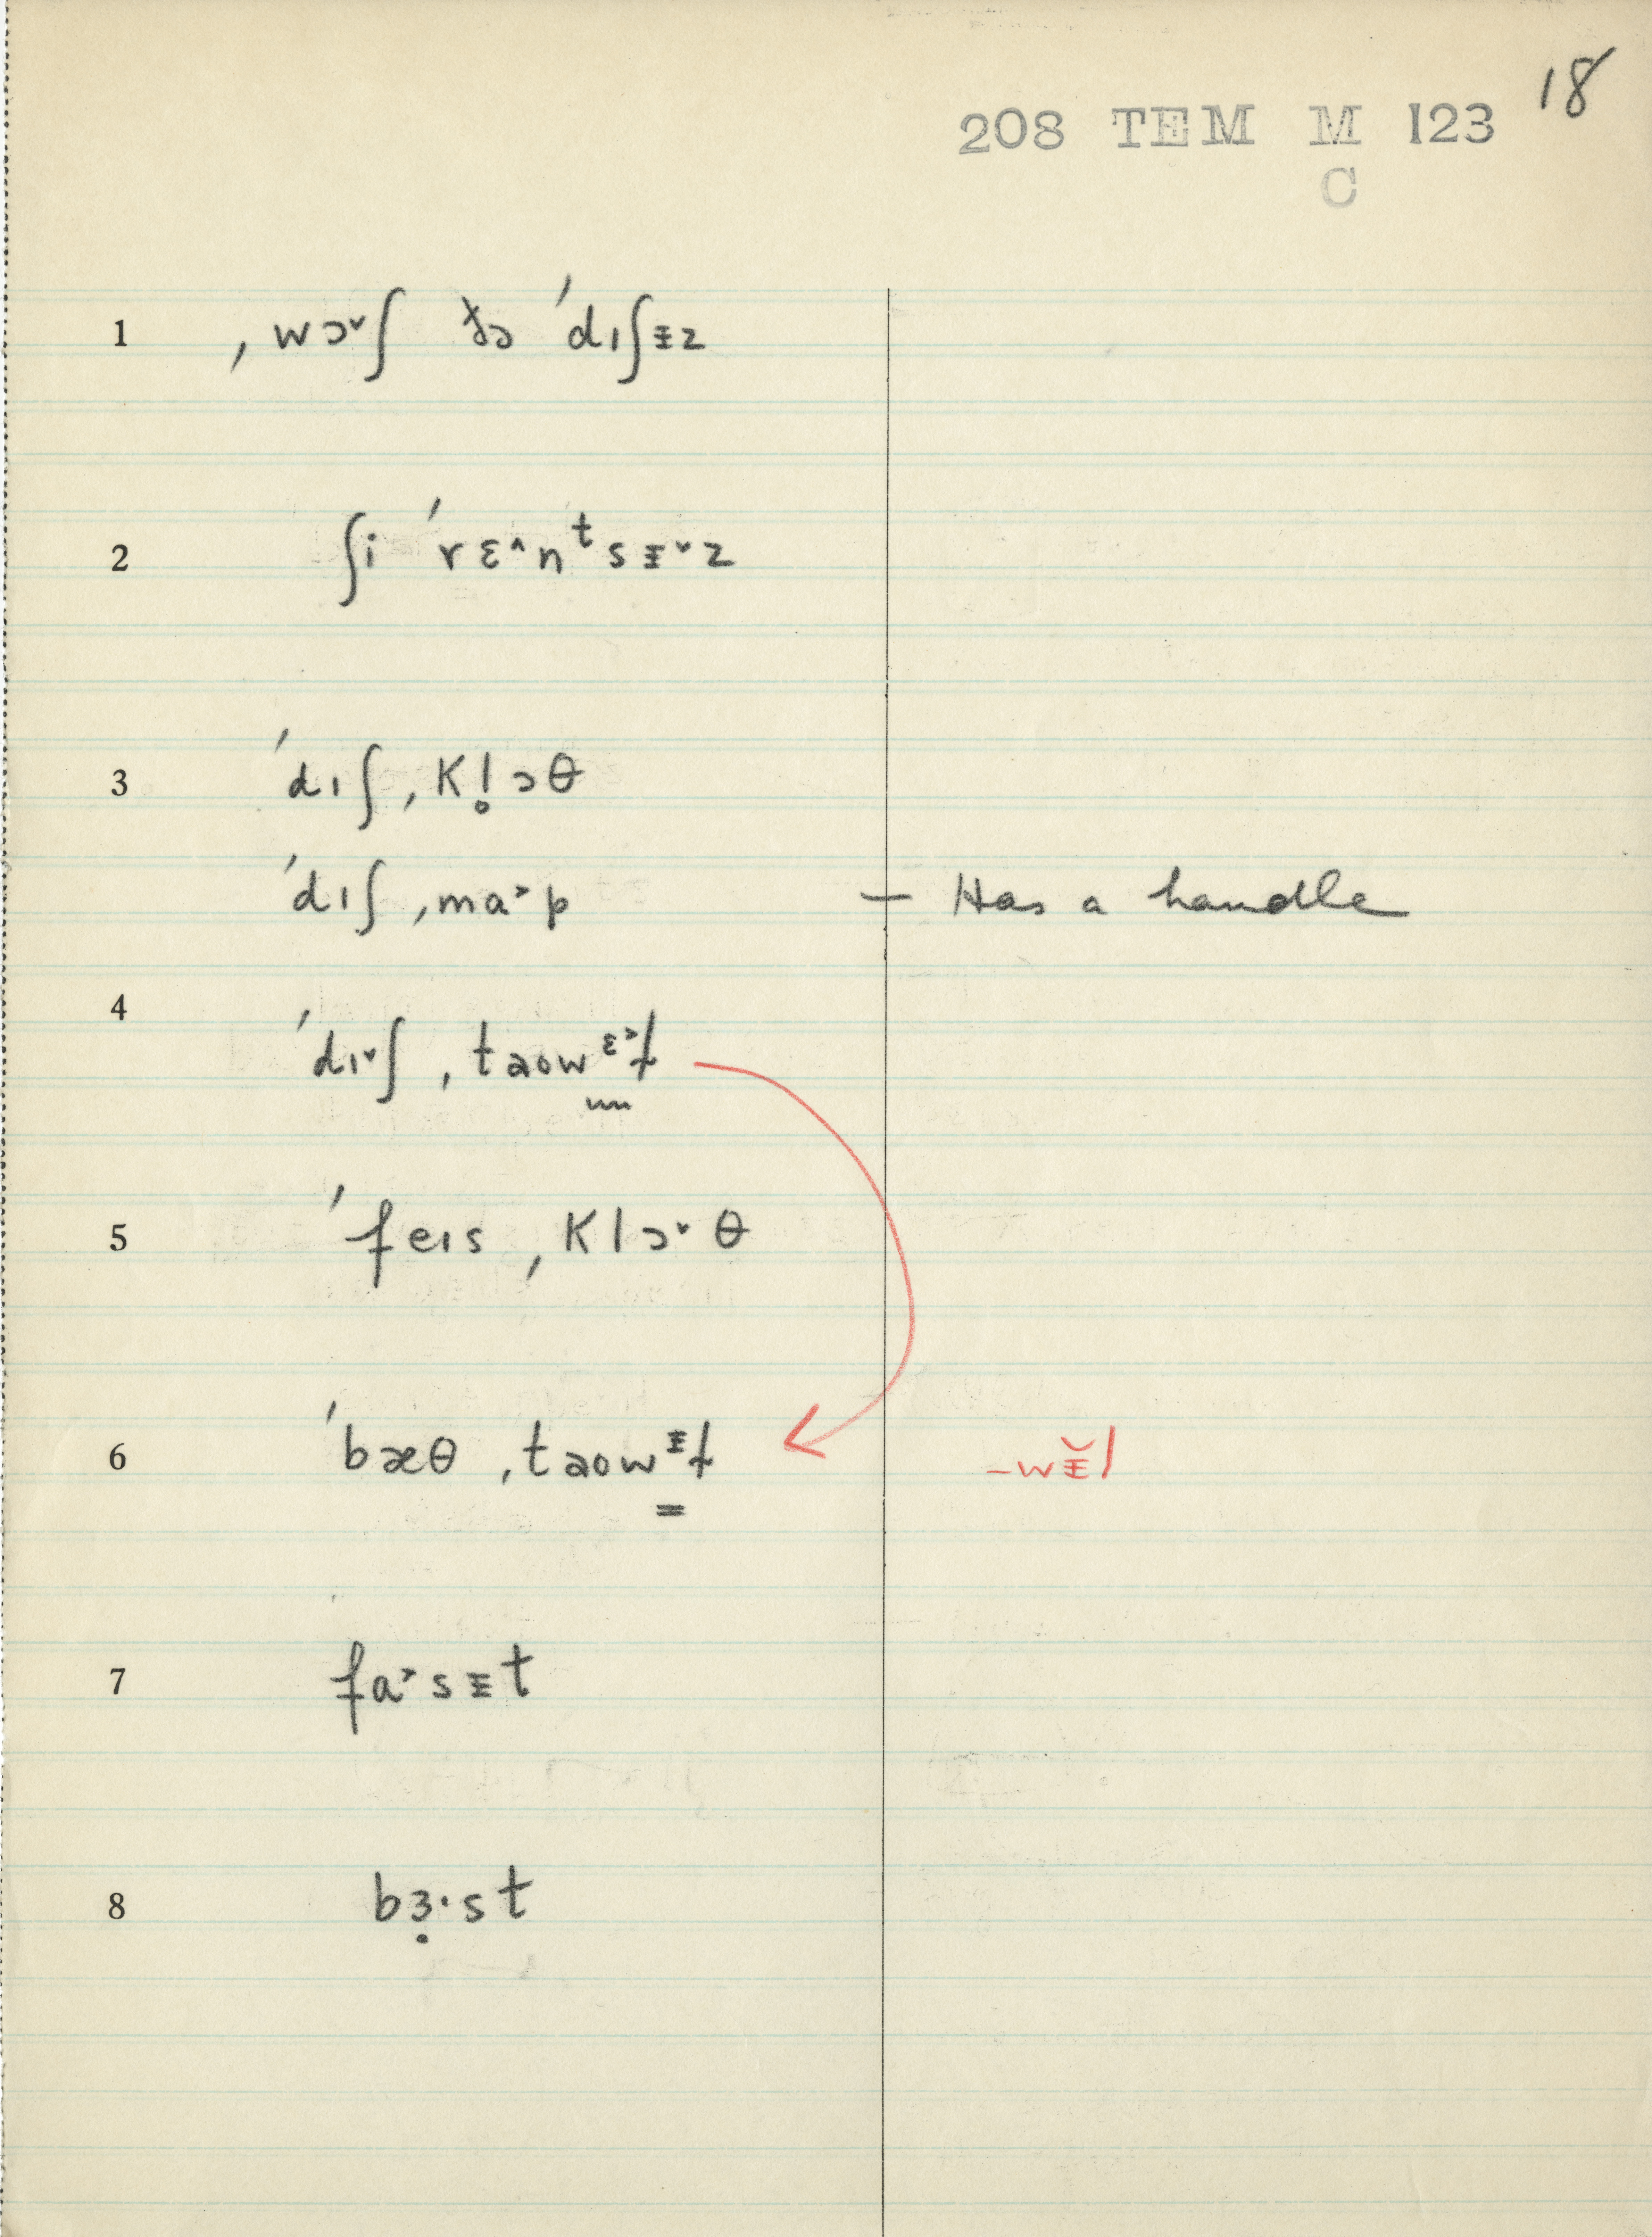 18
208 TEM M 123
C
1 ˌwɔ˅ʃ ðə ˈdɪʃɨz
2 ʃi ˈrɛ˄nᵗsɨ˅z
3 ˈdɪʃˌkl̥ɔθ
ˈdɪʃˌmɑ˃p – Has a handle
4 ˈdɪ˅ʃˌtaʊwᵋ˃ɫ
5 ˈfeɪsˌklɔ˅θ
6 ˈbæθˌtaʊwᵻɫ -wɨ̆l
7 fɑ˃sɨt
8 bɜ̣·st